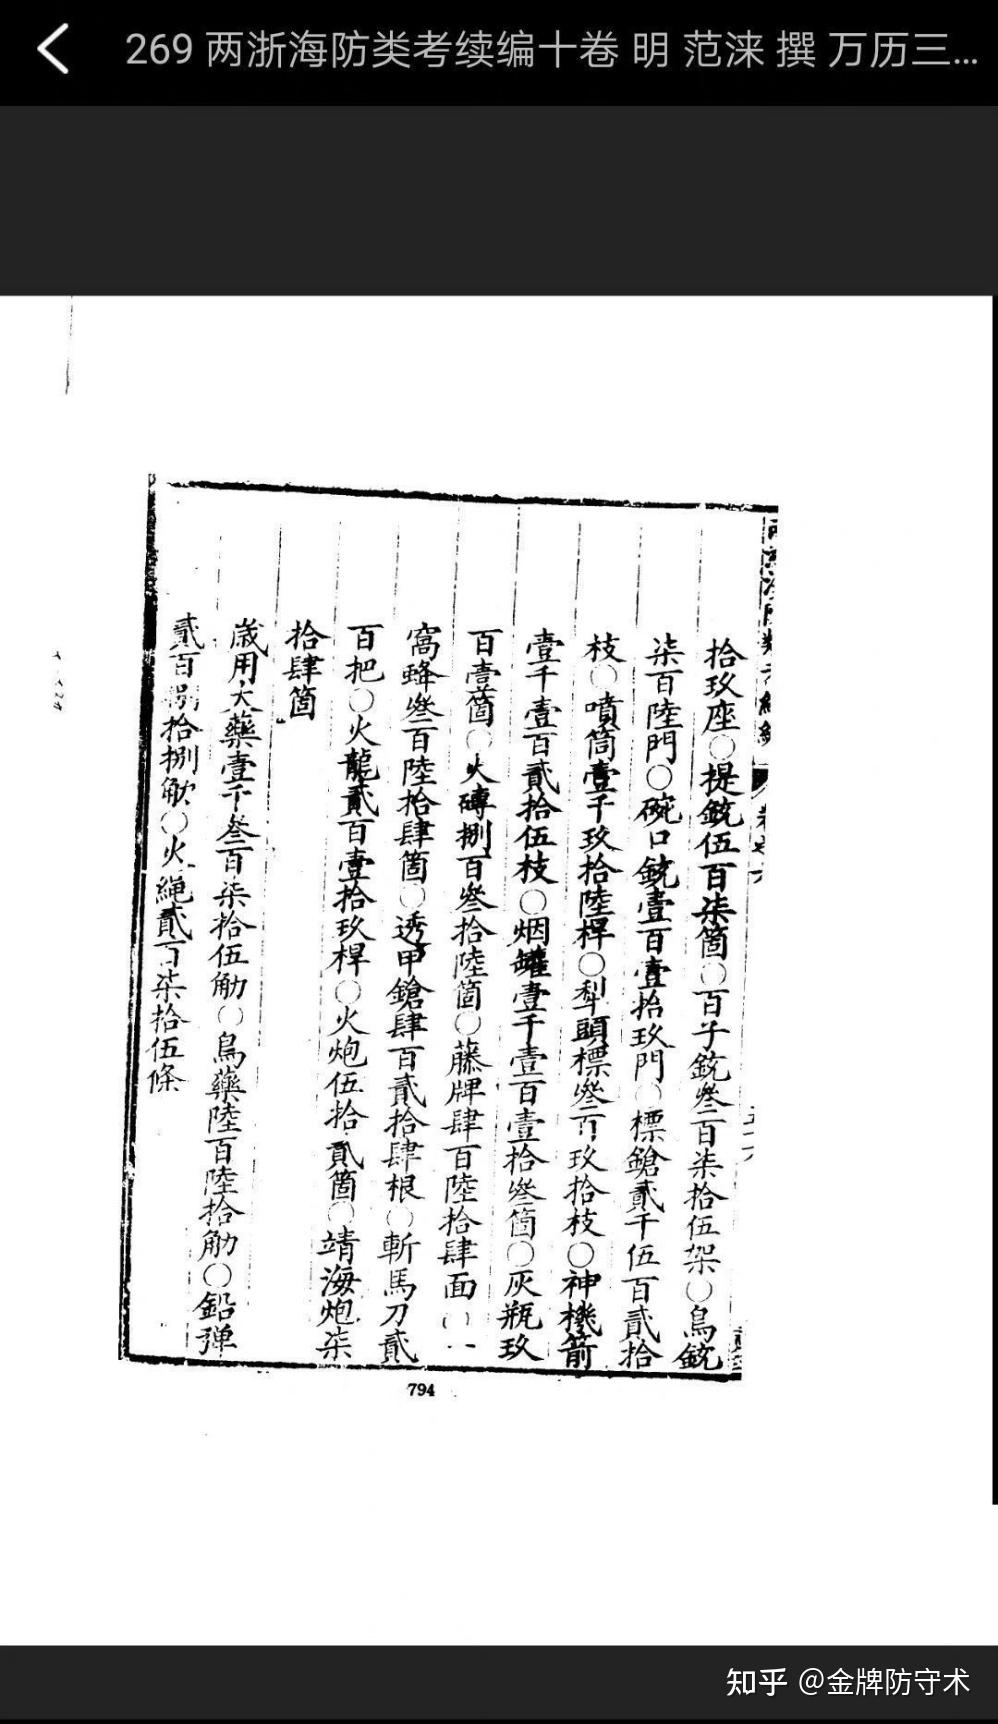 269 两浙海防类考续编十卷 明 范涞 撰 万历三...
拾玖座○提銃伍百柒箇○百子銃叄百柒拾伍架○鳥銃
柒百陸門○碗口銃壹百壹拾玖門○標鎗貳千伍百貳拾
枝○噴筒壹千玖拾陸桿○犁頭標叄百玖拾枝○神機箭
壹千壹百貳拾伍枝○烟罐壹千壹百壹拾叄箇○灰瓶玖
百壹箇○火磚捌百叄拾陸箇○藤牌肆百陸拾肆面○一
窩蜂叄百陸拾肆箇○透甲鎗肆百貳拾肆根○斬馬刀貳
百把○火龍貳百壹拾玖桿○火炮伍拾貳箇○靖海炮柒
拾肆箇
歲用火藥壹千叄百柒拾伍觔○鳥藥陸百陸拾觔○鉛彈
貳百捌拾捌觔○火繩貳百柒拾伍條
794
知乎 @金牌防守术